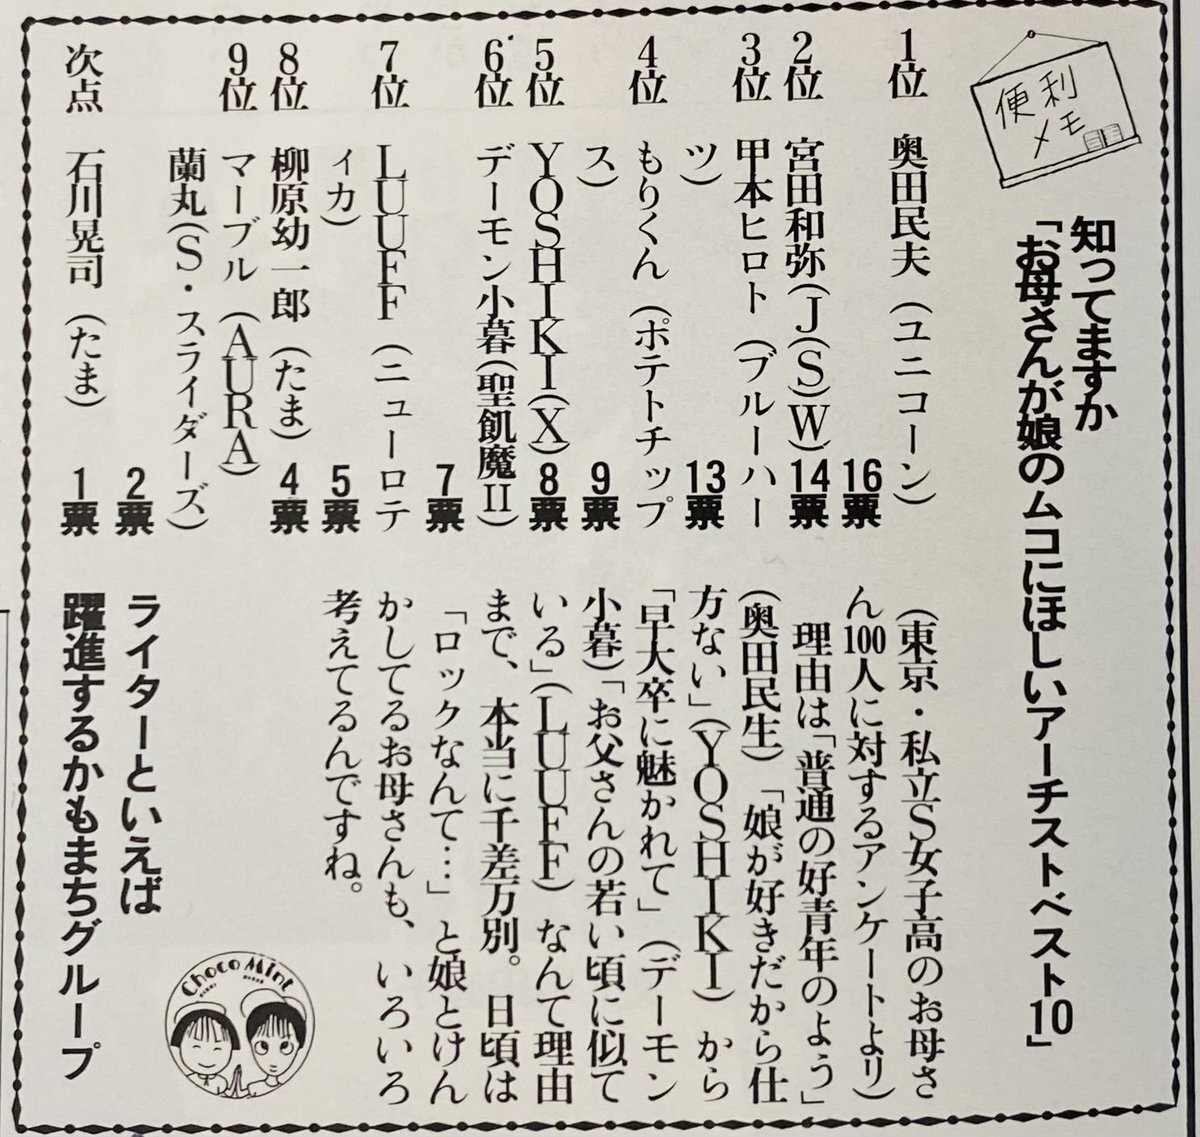 便利
メモ
知ってますか
「お母さんが娘のムコにほしいアーチストベスト10」
1位 奥田民夫(ユニコーン)
16票
2位 宮田和弥(J(S)W) 14票
3位 甲本ヒロト(ブルーハー
ツ) 13票
4位 もりくん(ポテトチップ
ス) 9票
5位 YOSHIKI(X) 8票
6位 デーモン小暮(聖飢魔II)
7票
7位 LUUFF(ニューロテ
ィカ) 5票
8位 柳原幼一郎(たま) 4票
9位 マーブル(AURA)
蘭丸(S・スライダーズ)
2票
次点 石川晃司(たま) 1票
(東京・私立S女子高のお母さ
ん100人に対するアンケートより)
理由は「普通の好青年のよう」
(奥田民生)「娘が好きだから仕
方ない」(YOSHIKI)から
「早大卒に魅かれて」(デーモン
小暮)「お父さんの若い頃に似て
いる」(LUUFF)なんて理由
まで、本当に千差万別。日頃は
「ロックなんて…」と娘とけん
かしてるお母さんも、いろいろ
考えてるんですね。
ライターといえば
躍進するかもまちグループ
Choco Mint